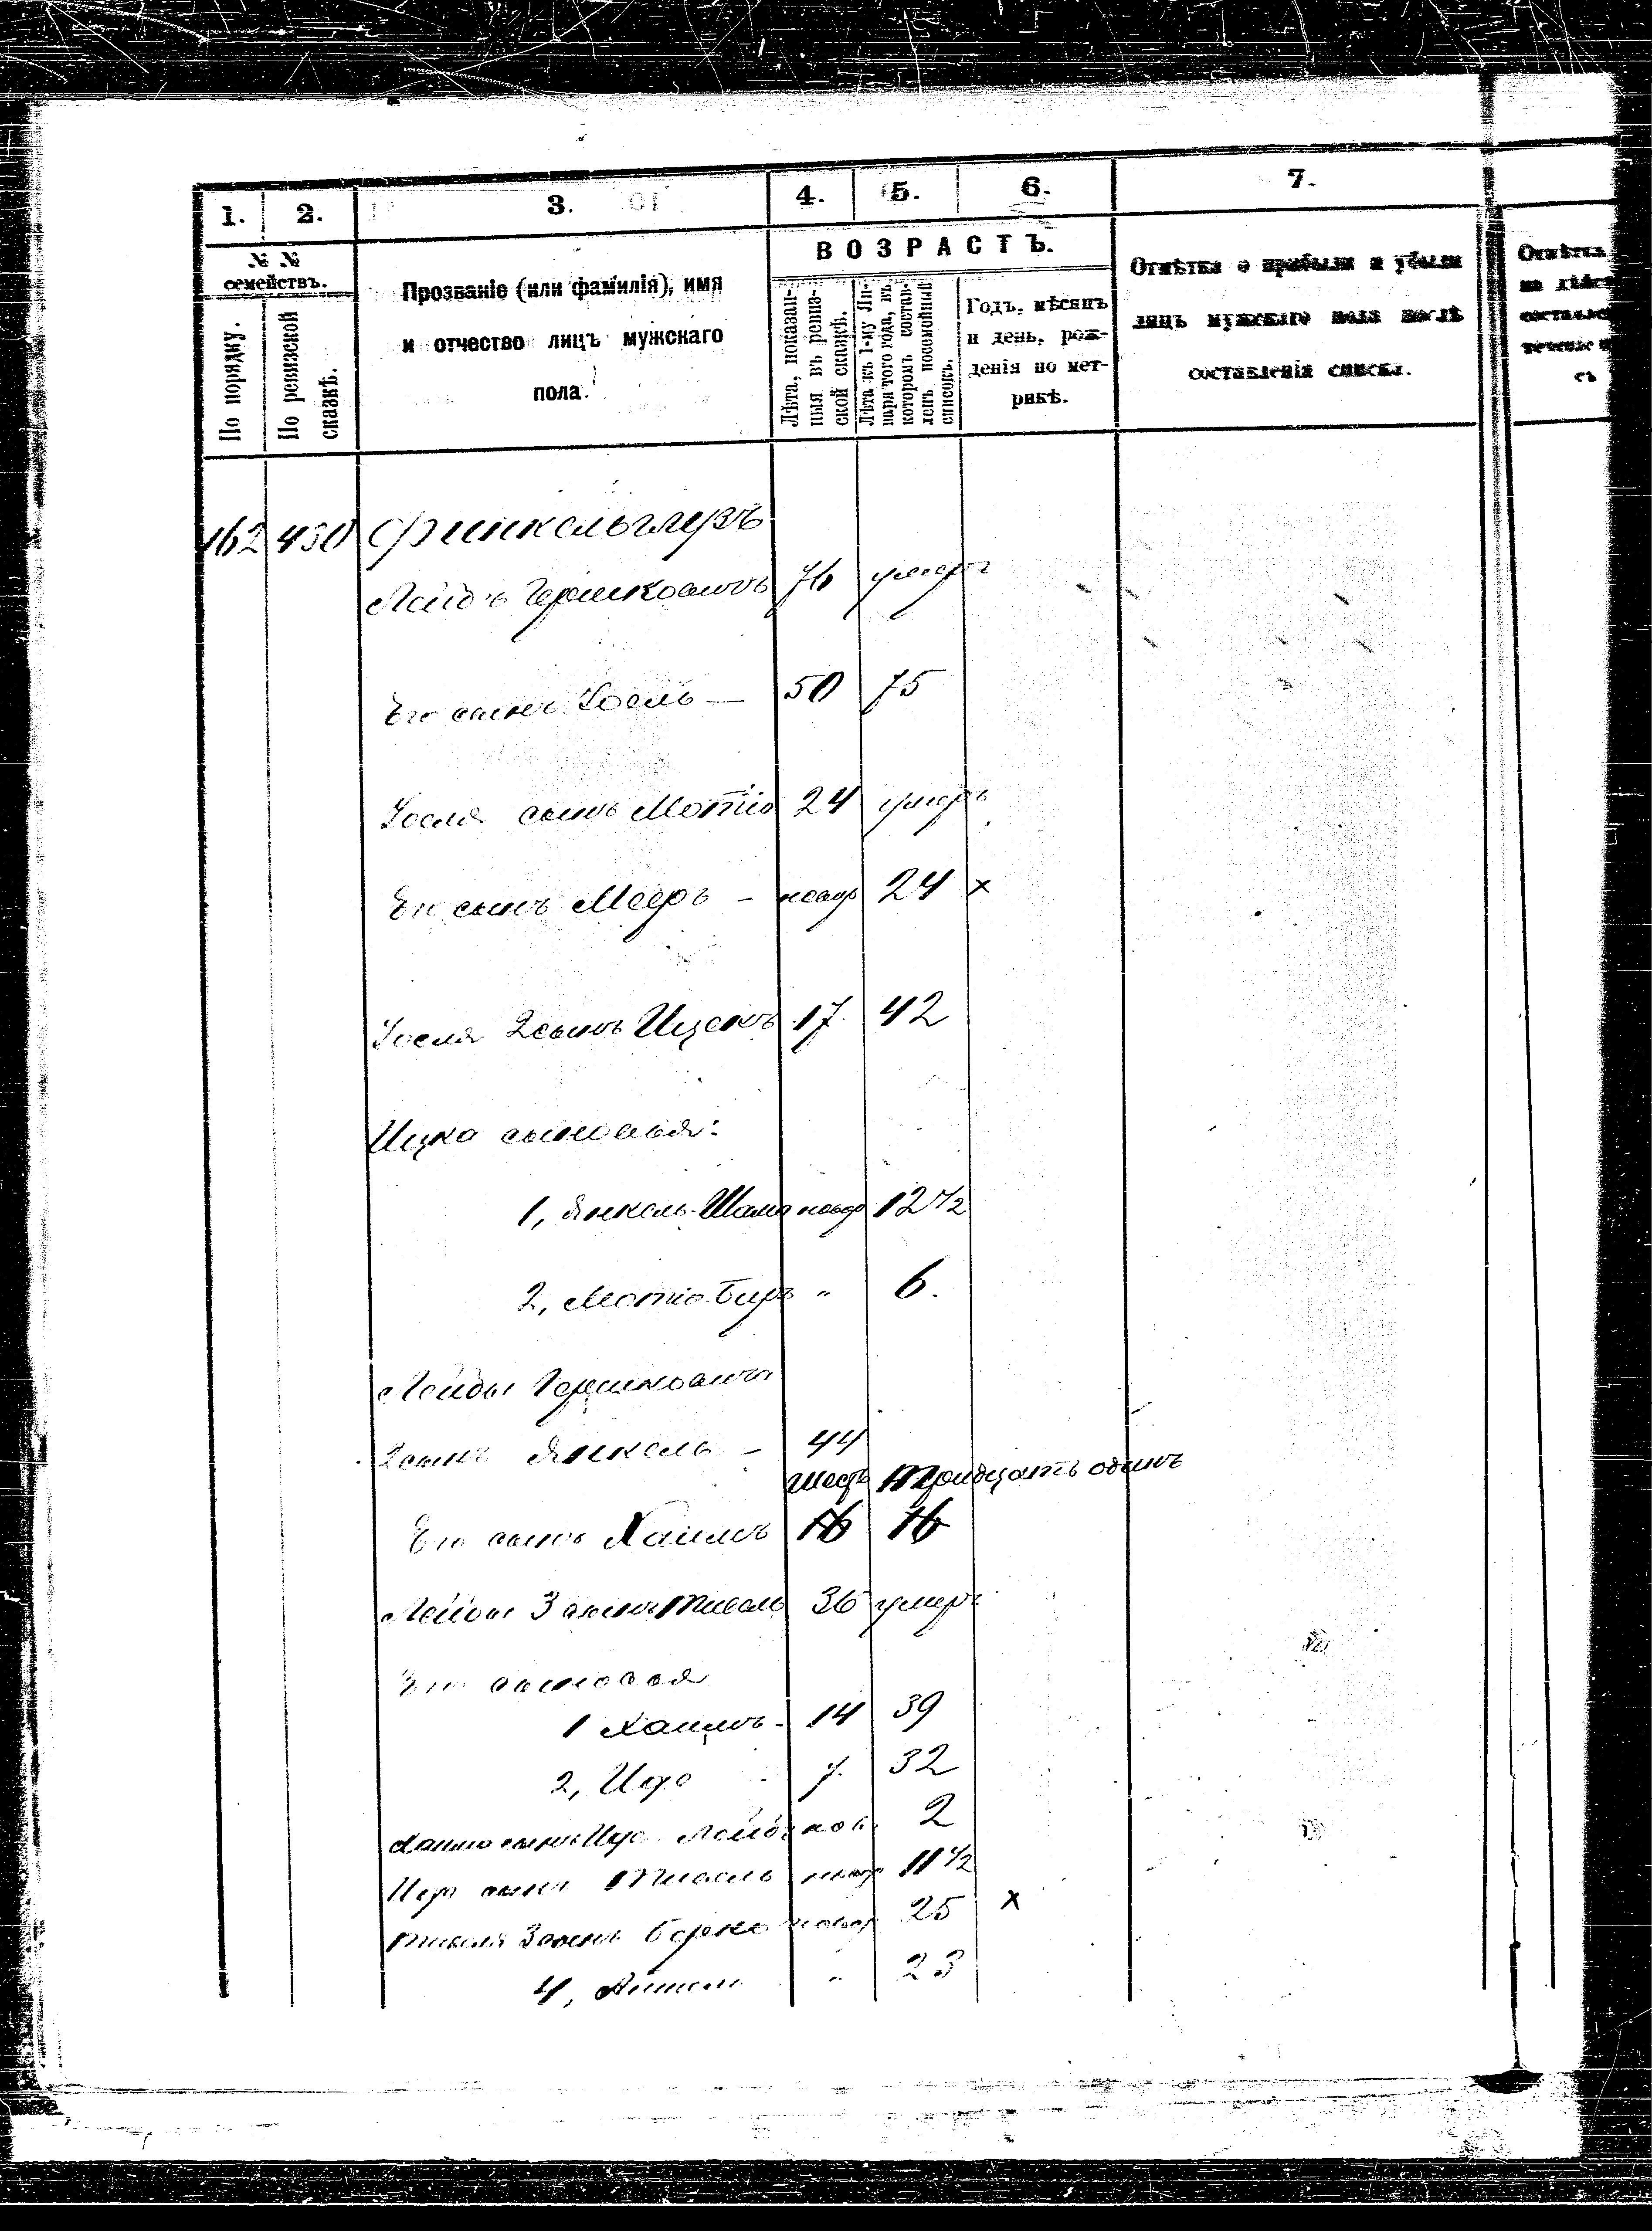 1. 2. 3. 4. 5. 6. 7.
№ № семействъ.
По порядку.
По ревизской сказкѣ.
Прозваніе (или фамилія), имя
и отчество лицъ мужскаго
пола.
ВОЗРАСТЪ.
Лѣта, показан-
ныя въ ревиз-
ской сказкѣ.
Лѣта къ 1-му Ян-
варя того года, въ
которомъ состав-
ленъ посемейный
списокъ.
Годъ, мѣсяцъ
и день, рож-
денія по мет-
рикѣ.
Отмѣтка о прибыли и убыли
лицъ мужскаго пола послѣ
составленія списка.
Отмѣтка
162 430 Финкельглузъ
Лейбъ Гершковичъ 76 умеръ
Его сынъ Іосель — 50 75
Іоселя сынъ Мотіо 24 умеръ
Его сынъ Мееръ - новор 24 x
Іоселя 2 сынъ Ицекъ 17. 42
Ицка сыновья:
1, Янкель-Шама новор 12 1/2
2, Мотіо-Беръ " 6.
Лейбы Гершковича
2 сынъ Янкель - 44
шесть тридцать одинъ
Его сынъ Хаимъ 16 16
Лейбы 3 сынъ 36 умеръ
Его сыновья
1 Хаимъ - 14 39
2, Ицо 7. 32
Хаима сынъ Ицо Лейбъ нов. 2
Ицо сынъ новор 11 1/2
3 сынъ Берко новор 25 x
4, " 23